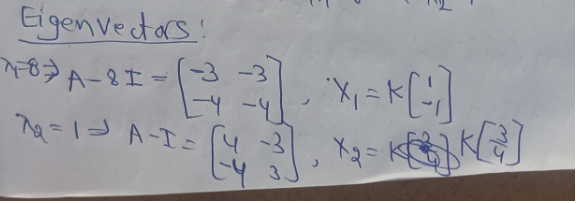 Eigenvectors:
λ=8⇒ A-8I = [-3 -3; -4 -4], X₁ = K[1; -1]
λ₂=1⇒ A-I = [4 -3; -4 3], X₂ = K K[3; 4]